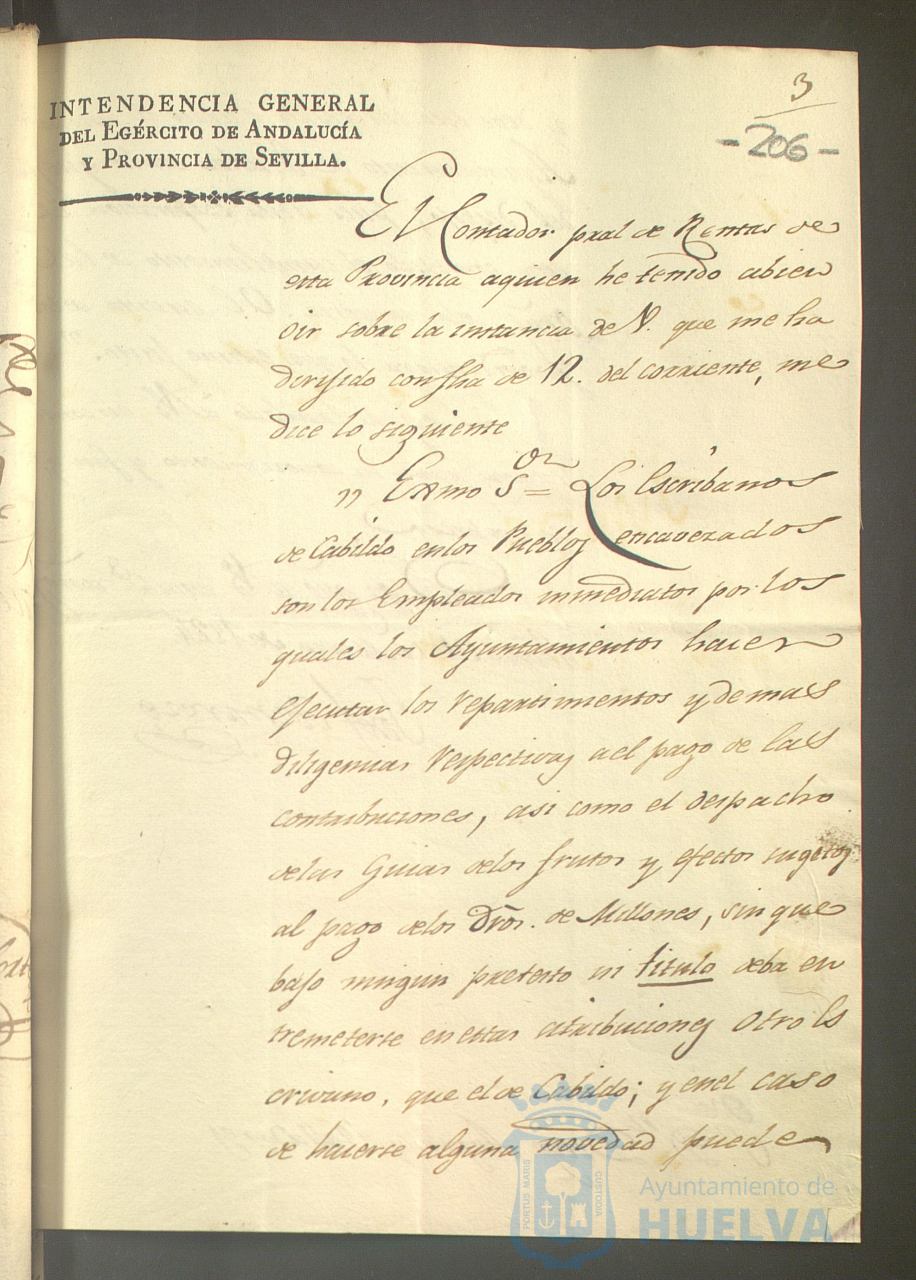 INTENDENCIA GENERAL
DEL EGÉRCITO DE ANDALUCÍA
Y PROVINCIA DE SEVILLA.
3
-206-
El Contador pral de Rentas de
esta Provincia aquien he tenido abien
oir sobre la instancia de V. que me ha
dirijido con fha de 12. del corriente, me
dice lo siguiente
" Exmo Sor = Los Escribanos
de Cabildo en los Pueblos encavezados
son los Empleados inmediatos por los
quales los Ayuntamientos hacen
efecutar los repartimientos y demas
diligencias respectivas ael pago de las
contribuciones, asi como el despacho
delas Guias delos frutos y efectos sugetos
al pago delos Dros. de Millones, sin que
bajo ningun pretesto ni titulo deba en
tremeterse en estas atribuciones otro Es
crivano, que el de Cabildo; y enel caso
de hacerse alguna novedad puede
PORTUS MARIS
CUSTODIA
Ayuntamiento de
HUELVA